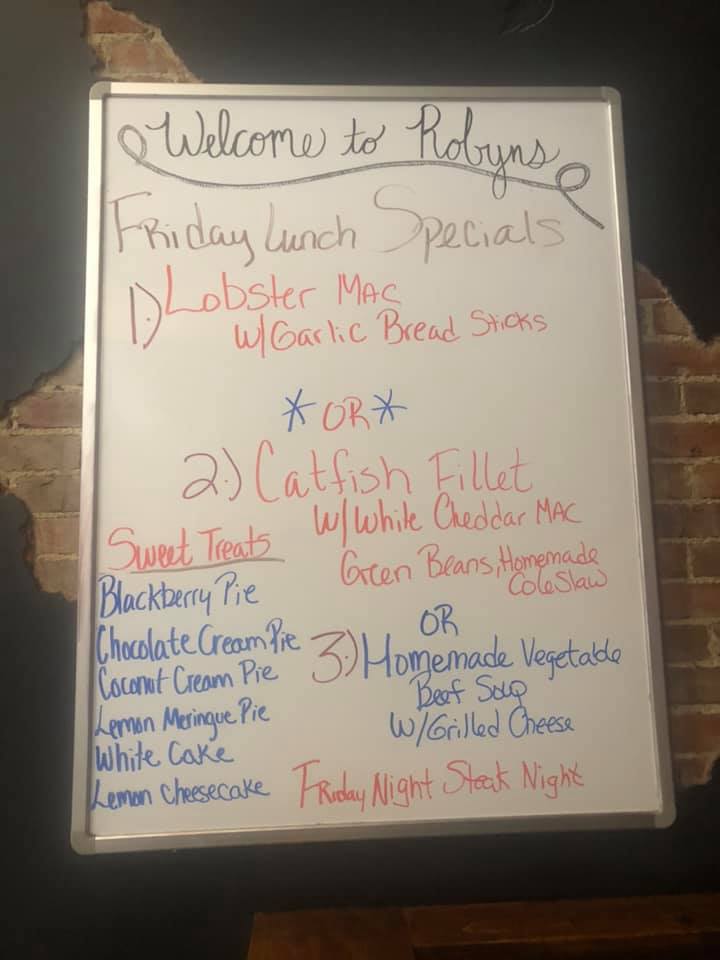 Welcome to Robyns
Friday Lunch Specials
1.) Lobster Mac
w/Garlic Bread Sticks
*OR*
2.) Catfish Fillet
w/White Cheddar Mac
Green Beans, Homemade
Cole Slaw
OR
3.) Homemade Vegetable
Beef Soup
w/Grilled Cheese
Sweet Treats
Blackberry Pie
Chocolate Cream Pie
Coconut Cream Pie
Lemon Meringue Pie
White Cake
Lemon Cheesecake
Friday Night Steak Night